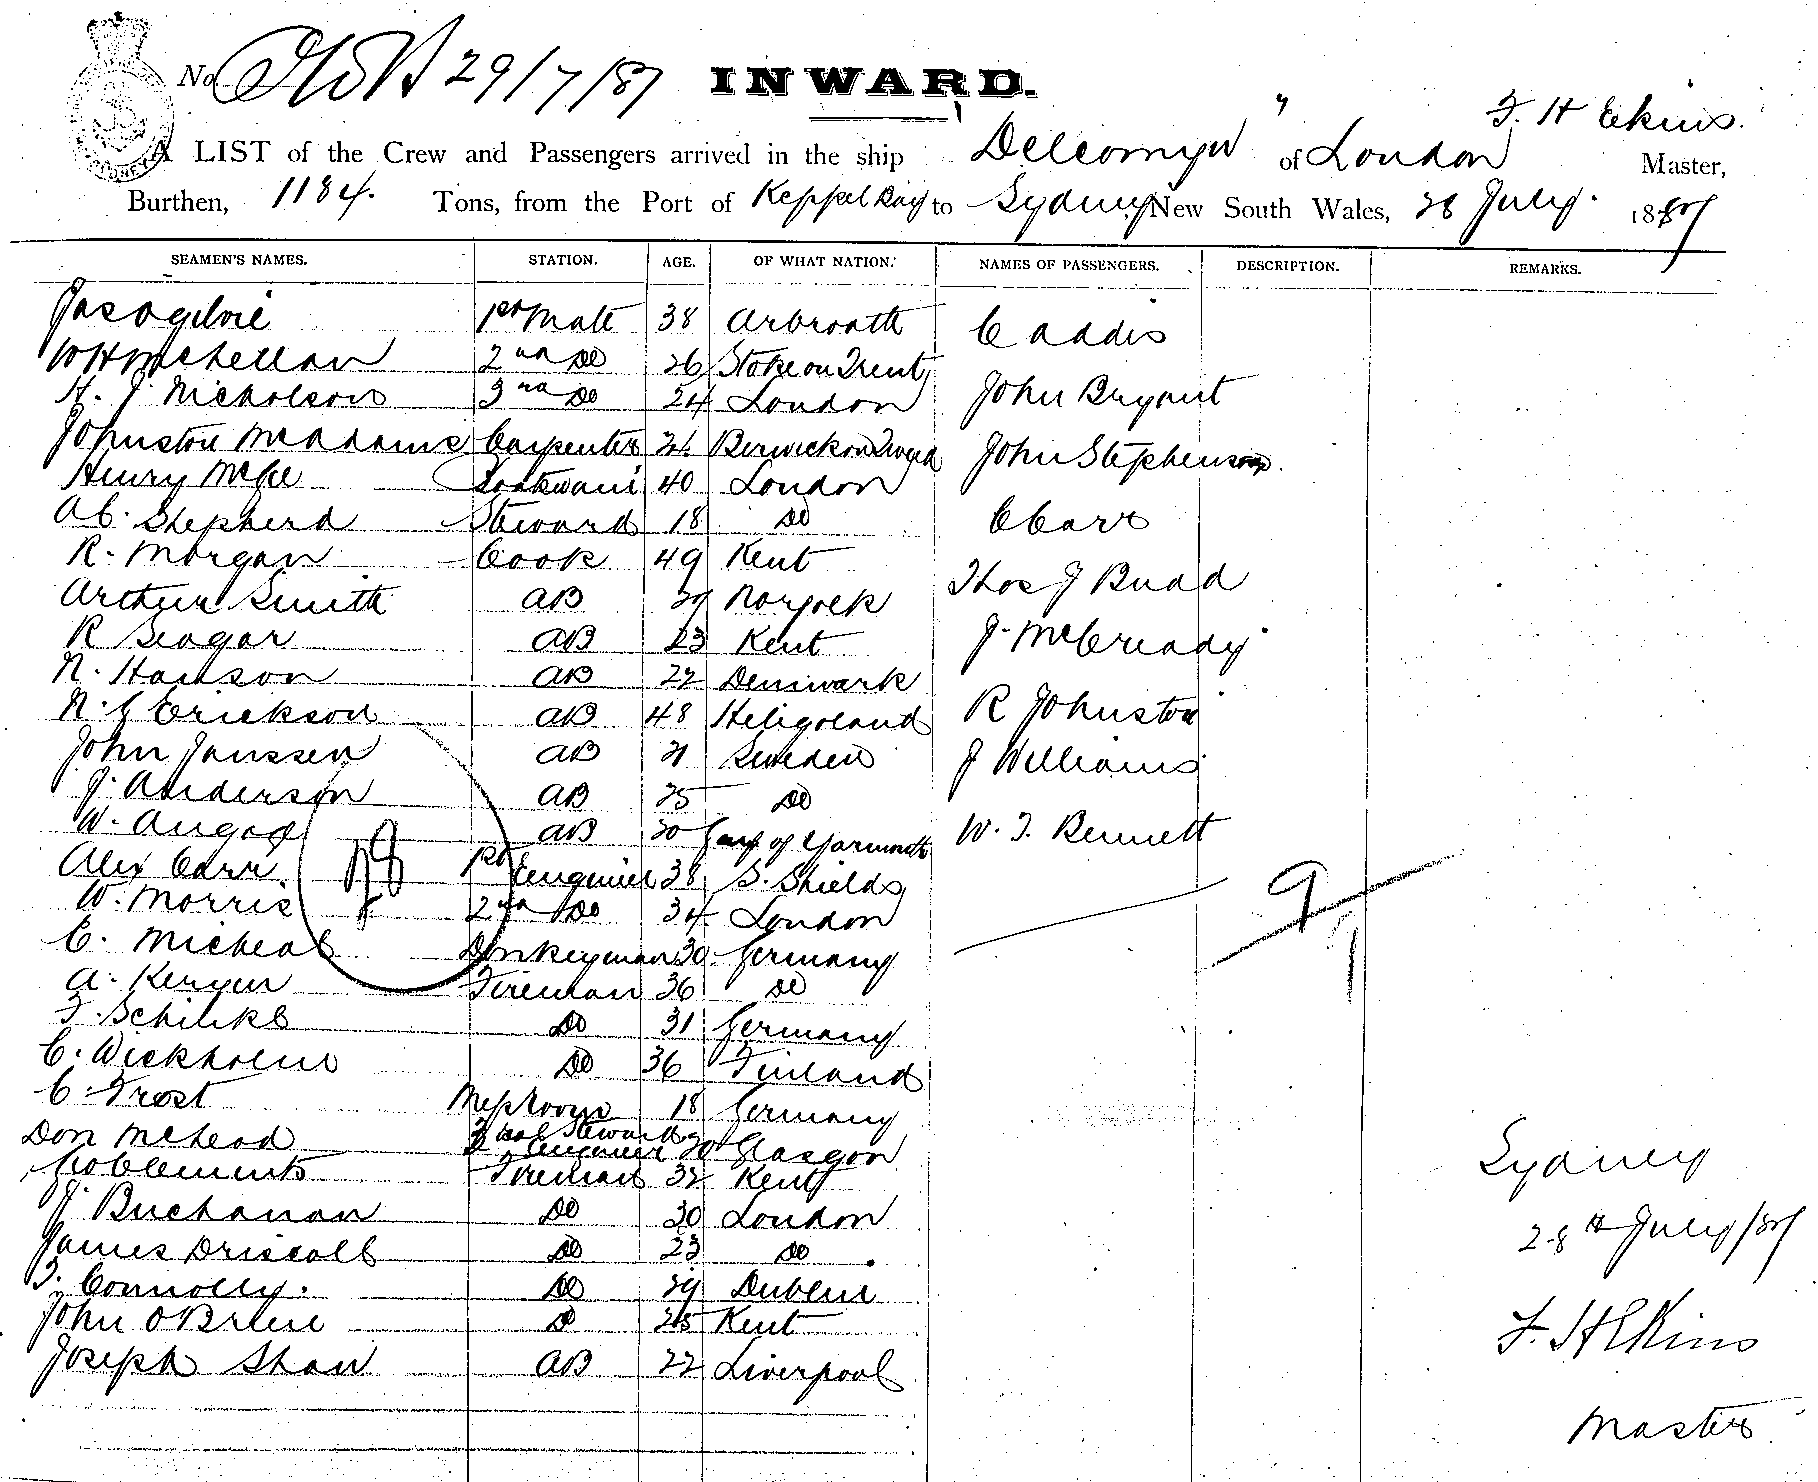 No 29/7/87 INWARD.
F. H Ekins.
A LIST of the Crew and Passengers arrived in the ship Delcomyn of London Master,
Burthen, 1184. Tons, from the Port of Keppel Bay to Sydney New South Wales, 28 July. 1887
SEAMEN'S NAMES. STATION. AGE. OF WHAT NATION. NAMES OF PASSENGERS. DESCRIPTION. REMARKS.
Jas Ogilvie 1st Mate 38 Arbroath C addis
W H McLellan 2nd Do 26 Stoke on Trent
H. J Nicholson 3rd Do 24 London John Bryant
Johnston McAdams Carpenter 24 Berwick on Tweed John Stephenson
Henry McGee 40 London
A C. Shepherd Steward 18 Do C Carr
R. Morgan Cook 49 Kent
Arthur Smith AB 29 Norfolk Thos J Budd
R Seagar AB 23 Kent J. McCready
N. Hanson AB 22 Denmark
N. J Erickson AB 48 Heligoland R Johnston
John Janssen AB 21 Sweden J Williams
J. Anderson AB 25 Do
W. AB 20 of Yarmouth W. T. Bennett
Alex Carr. 1st Engineer 38 S. Shields
W. Morris 2nd Do 34 London 9
C. Micheal Donkeyman 30 Germany
A. Fireman 36 Do
F. Do 31 Germany
C. Wickholm Do 36 Finland
C. Frost Mess Room 18 Germany
Steward
Don McLeod 3 Engineer 20 Glasgow Sydney
Geo Clements Fireman 32 Kent
J. Buchanan Do 30 London 28th July/87
James Driscoll Do 23 Do
T. Connolly. Do 29 Dublin
John O Brien D 25 Kent F. H Ekins
Joseph Shaw AB 22 Liverpool
Master